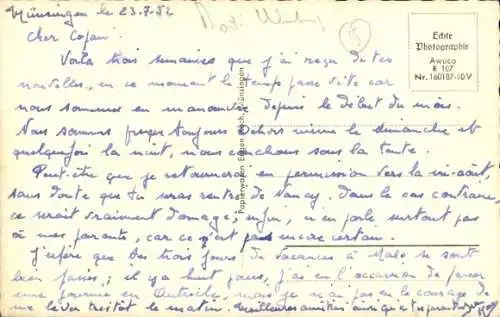 Münsingen le 23.7.52
Cher Copain.
Echte
Photographie
Awuco
R 107
Nr. 160187-10 V
Voilà trois semaines que j'ai reçu de tes
nouvelles, en ce moment le temps passe vite car
nous sommes en manœuvre depuis le début du mois.
Nous sommes presque toujours dehors même le dimanche et
quelquefois la nuit, nous couchons sous la tente.
Peut-être que je retournerai en permission vers la mi-août,
sans doute que tu seras rentré de Nancy. Dans le cas contraire,
ce serait vraiment dommage, enfin, n'en parle surtout pas
à mes parents, car ce n'est pas encore certain.
J'espère que tes trois jours de vacances à se sont
bien passés; il y a huit jours, j'ai eu l'occasion de passer
une journée en Autriche, mais je n'ai pas eu le courage de
me lever très tôt le matin. Meilleures amitiés ainsi qu'à
Papierwaren, Münsingen